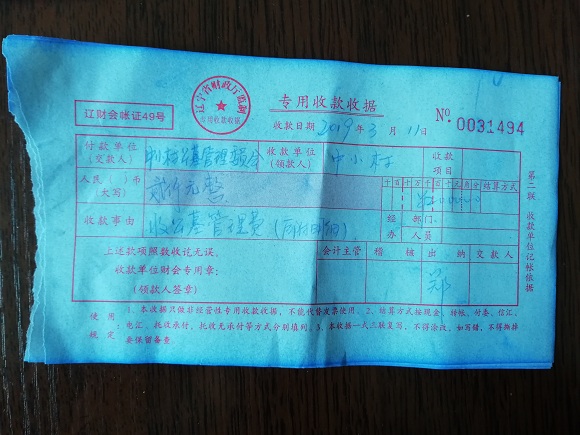 辽财会帐证49号
辽宁省财政厅监制
专用收款收据
专用收款收据
收款日期 2019年3月11日
No. 0031494
付款单位(交款人) 管理委员会 收款单位(领款人) 中小村 收款项目
人民( )币(大写) 贰仟元整 千百十万千百十元角分 结算方式
¥200000
收款事由 收公墓管理费 经办 部门 人员
上述款项照数收讫无误。 会计主管 稽核 出纳 交款人
收款单位财会专用章:
(领款人签章) 郑
第二联 收款单位记帐依据
使用规定 1、本收据只做非经营性专用收款收据,不能代替发票使用。2、结算方式按现金、转帐、付委、信汇、
电汇、托收承付、托收无承付等方式分别填列。3、本收据一式三联复写,不得涂改,如写错,不得撕掉
要保留备查。